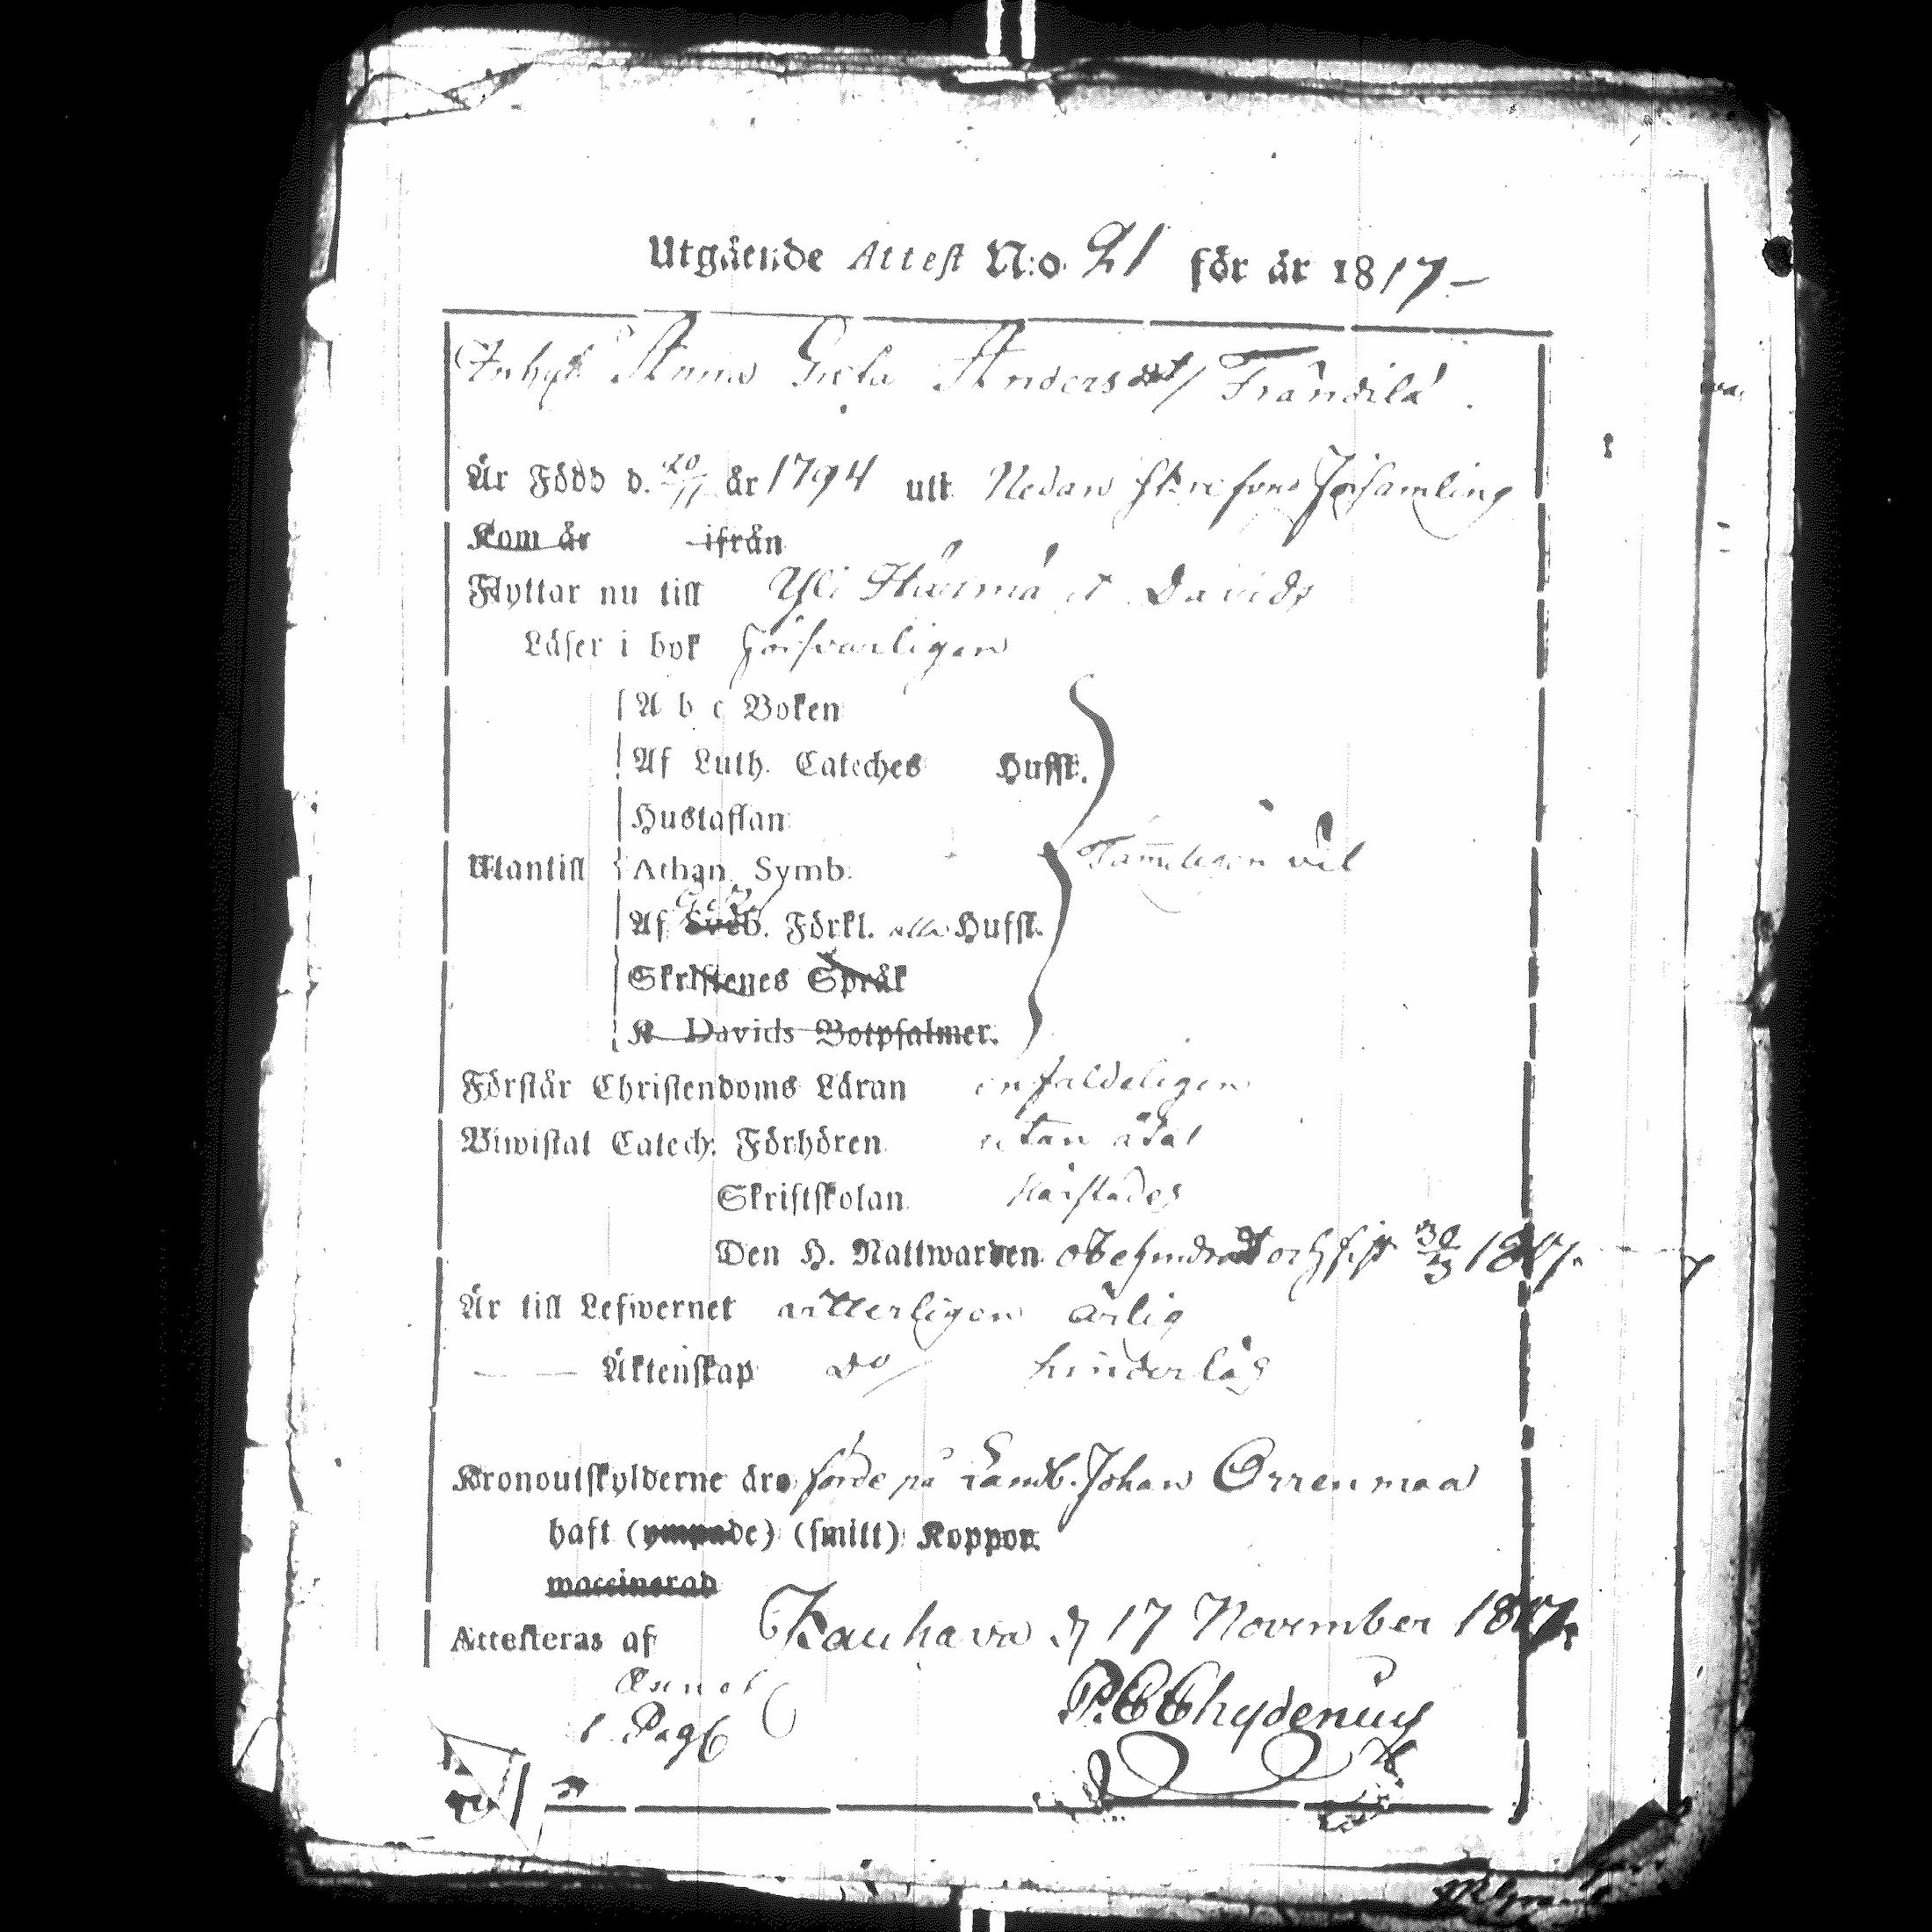 Utgående Attest N:o 21 för år 1817-
Inhys Anna Greta Andersdt/ Frändilä.
Är Född d. 20/11 år 1794 uti Nedanskrefvne Församling
Kom år ifrån
Flyttar nu till Yli Härmä Davids
Läser i bok försvarligen
A b c Boken
Af Luth. Cateches Hufst.
Hustaflan
Utantill Athan. Symb. Tämmeligen väl
Af Sveb. Förkl. alla Hufst.
Skriftenes Språk
K. Davids Botpsalmer.
Förstår Christendoms Läran enfaldeligen
Biwistat Catech. Förhören utan ådal
Skriftskolan städes
Den H. Nattwarden obehindradt och sist 30/3 1817.
Är till Lefwernet witterligen ärlig
— — Äktenskap Do/ hinderlös
Kronoutskylderne äro förde på Landb. Johan Orrenmaa
haft (ympade) (smitt) Koppor.
waccinerad
Attesteras af Kauhava d 17 November 1817.
P.E Chydenius
Pag